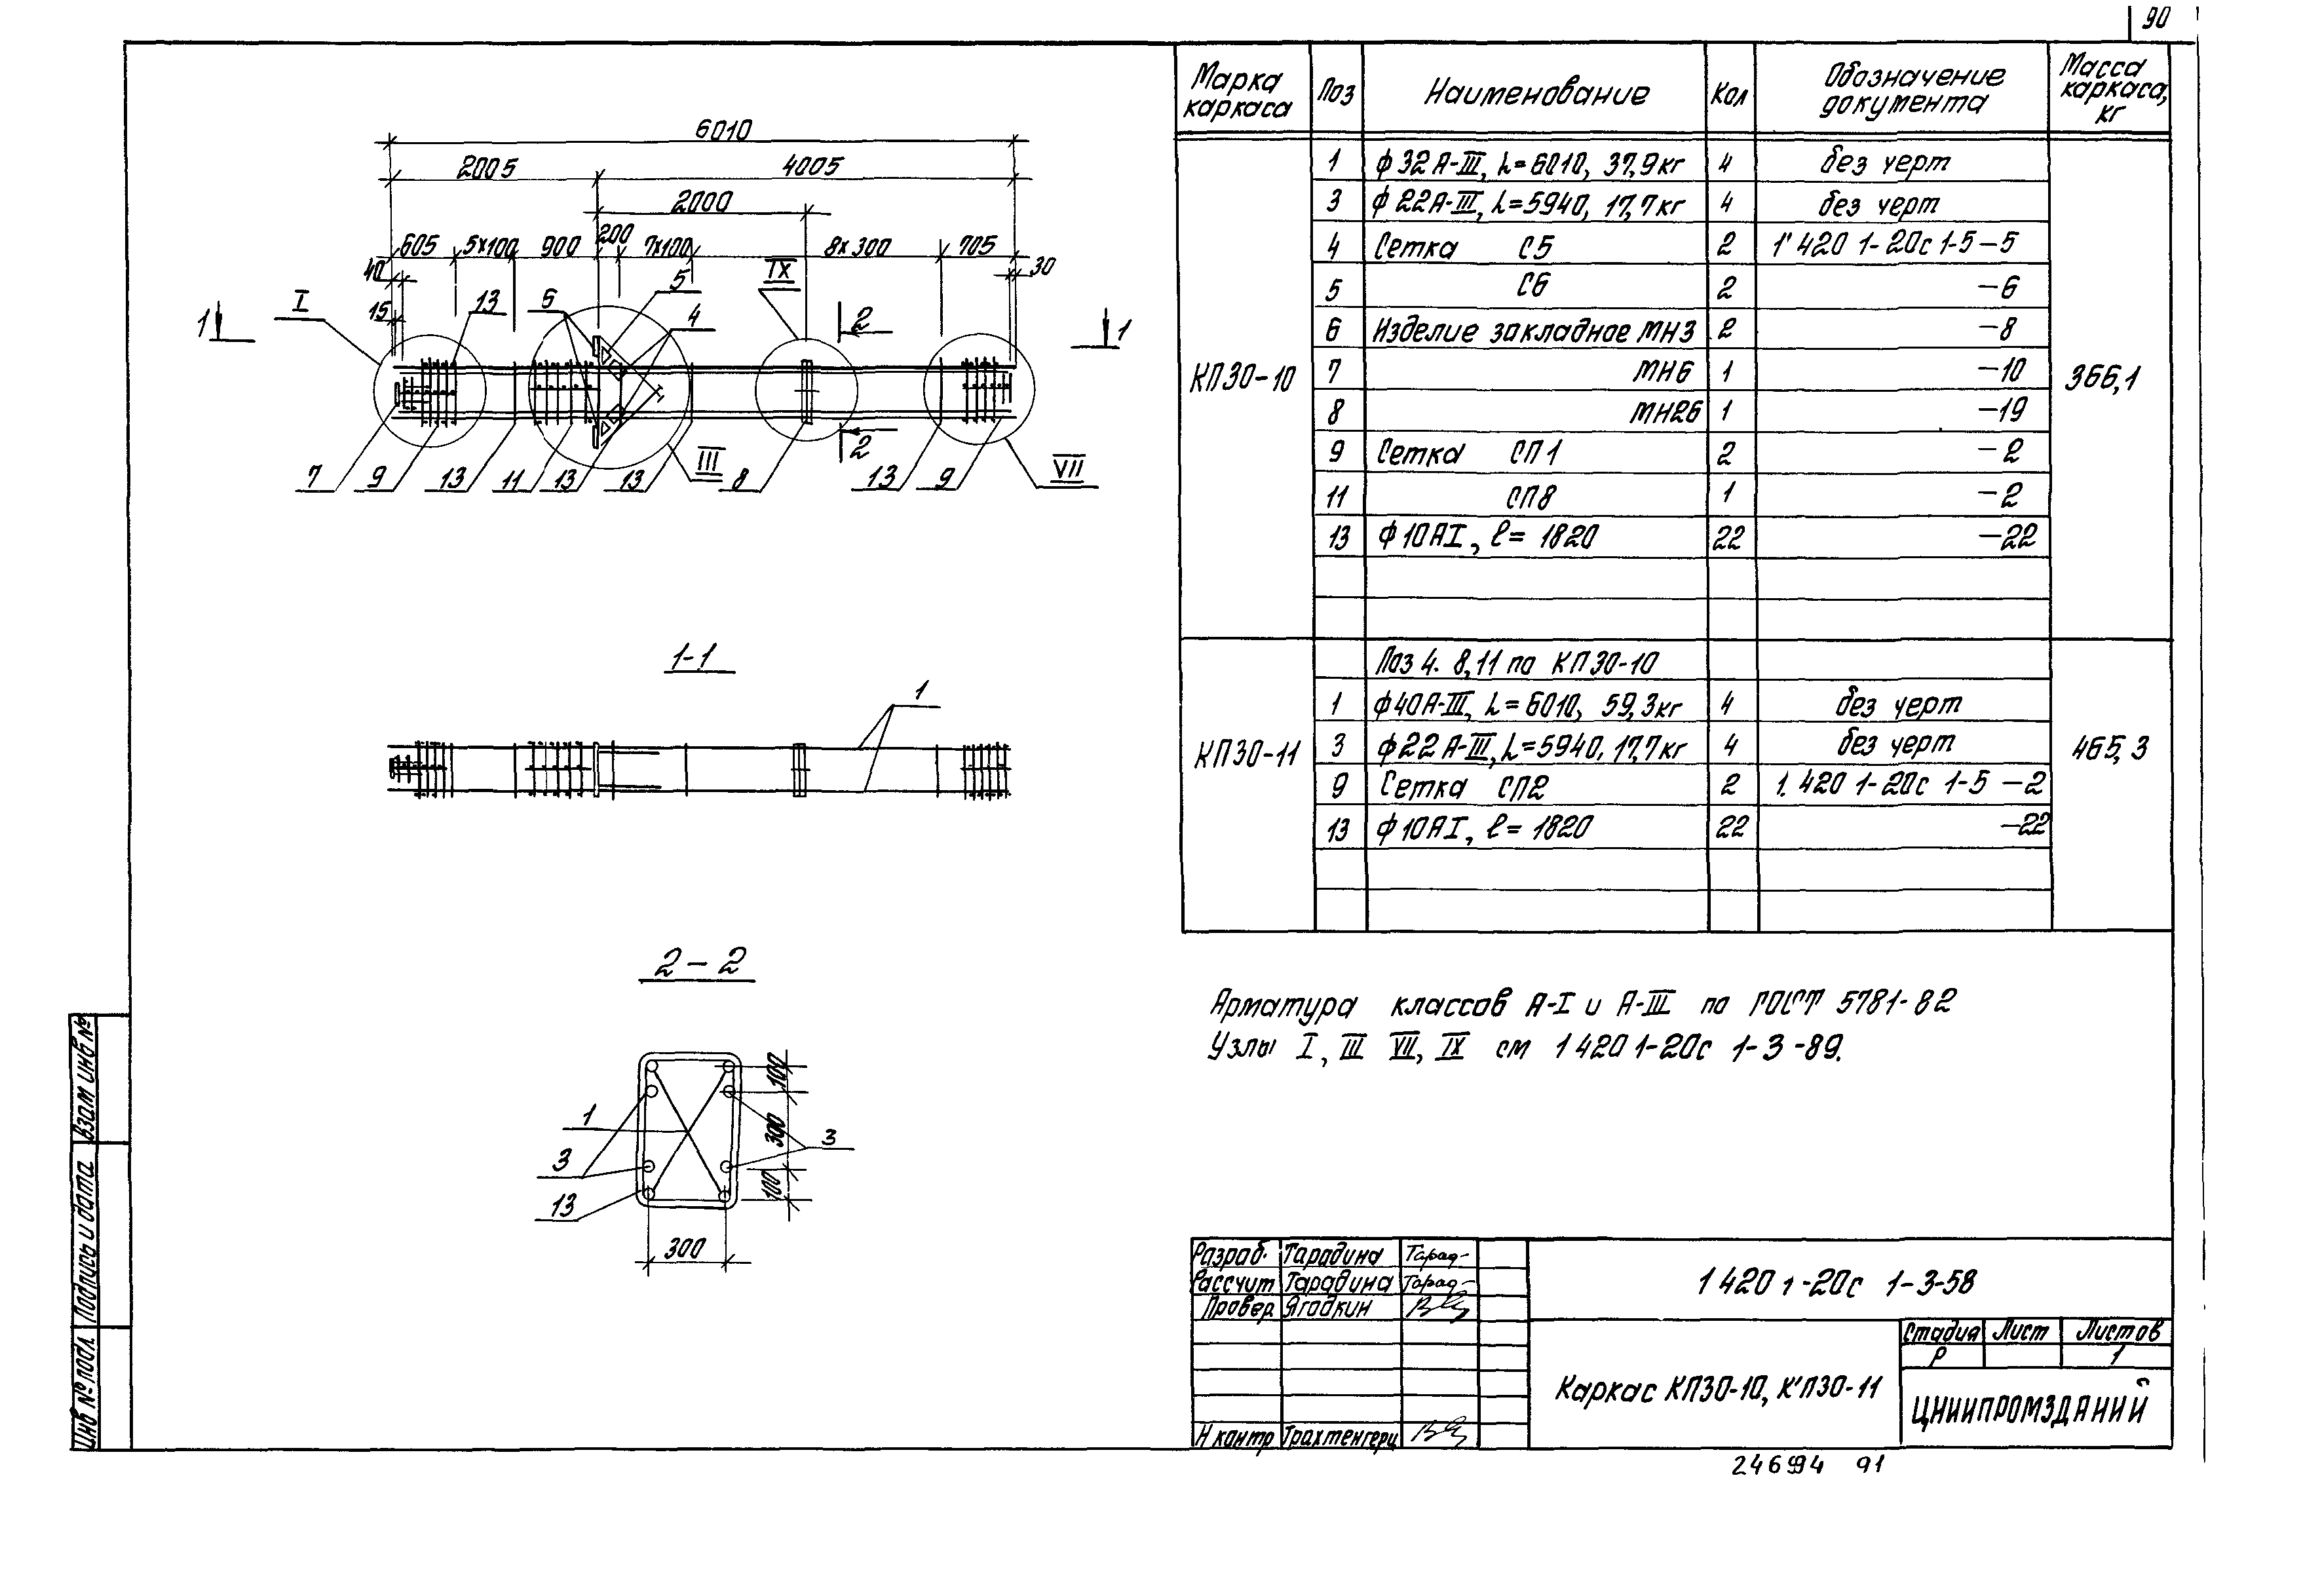 90
6010
2005 4005
2000
605 5х100 900 200 7х100 8х300 705
40 30
15
I 13 6 5 IX 4
1 2 1
2
7 9 13 11 13 13 III 8 13 9 VII
1-1
1
2-2
100
1 300 3
3
13 100
300
Марка каркаса Поз Наименование Кол Обозначение документа Масса каркаса, кг
КП30-10 366,1
1 ф32А-III, L=6010, 37,9кг 4 без черт
3 ф22А-III, L=5940, 17,7кг 4 без черт
4 Сетка С5 2 1 420 1-20с 1-5-5
5 С6 2 -6
6 Изделие закладное МН3 2 -8
7 МН6 1 -10
8 МН26 1 -19
9 Сетка СП1 2 -2
11 СП8 1 -2
13 ф10АI, ℓ=1820 22 -22
КП30-11 465,3
Поз 4. 8,11 по КП30-10
1 ф40А-III, L=6010, 59,3кг 4 без черт
3 ф22А-III, L=5940, 17,7кг 4 без черт
9 Сетка СП2 2 1. 420 1-20с 1-5 -2
13 ф10АI, ℓ=1820 22 -22
Арматура классов А-I и А-III по ГОСТ 5781-82
Узлы I, III VII, IX см 1 420 1-20с 1-3-89.
Взам инв №
Подпись и дата
Инв № подл.
Разраб. Тарадина Тарад-
Рассчит Тарадина Тарад-
Провер. Ягодкин
Н контр Трахтенгерц
1 420 1-20с 1-3-58
Каркас КП30-10, КП30-11
Стадия Лист Листов
Р 1
ЦНИИПРОМЗДАНИЙ
91